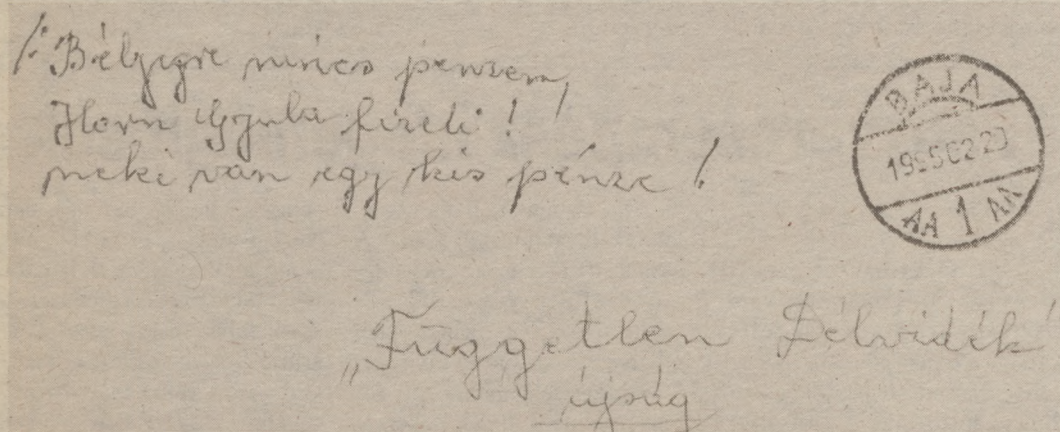 /: Bélyegre nincs pénzem,
Horn Gyula fizeti!
neki van egy kis pénze!
BAJA
1995 02 20
AA 1 AA
„Független Délvidék"
újság